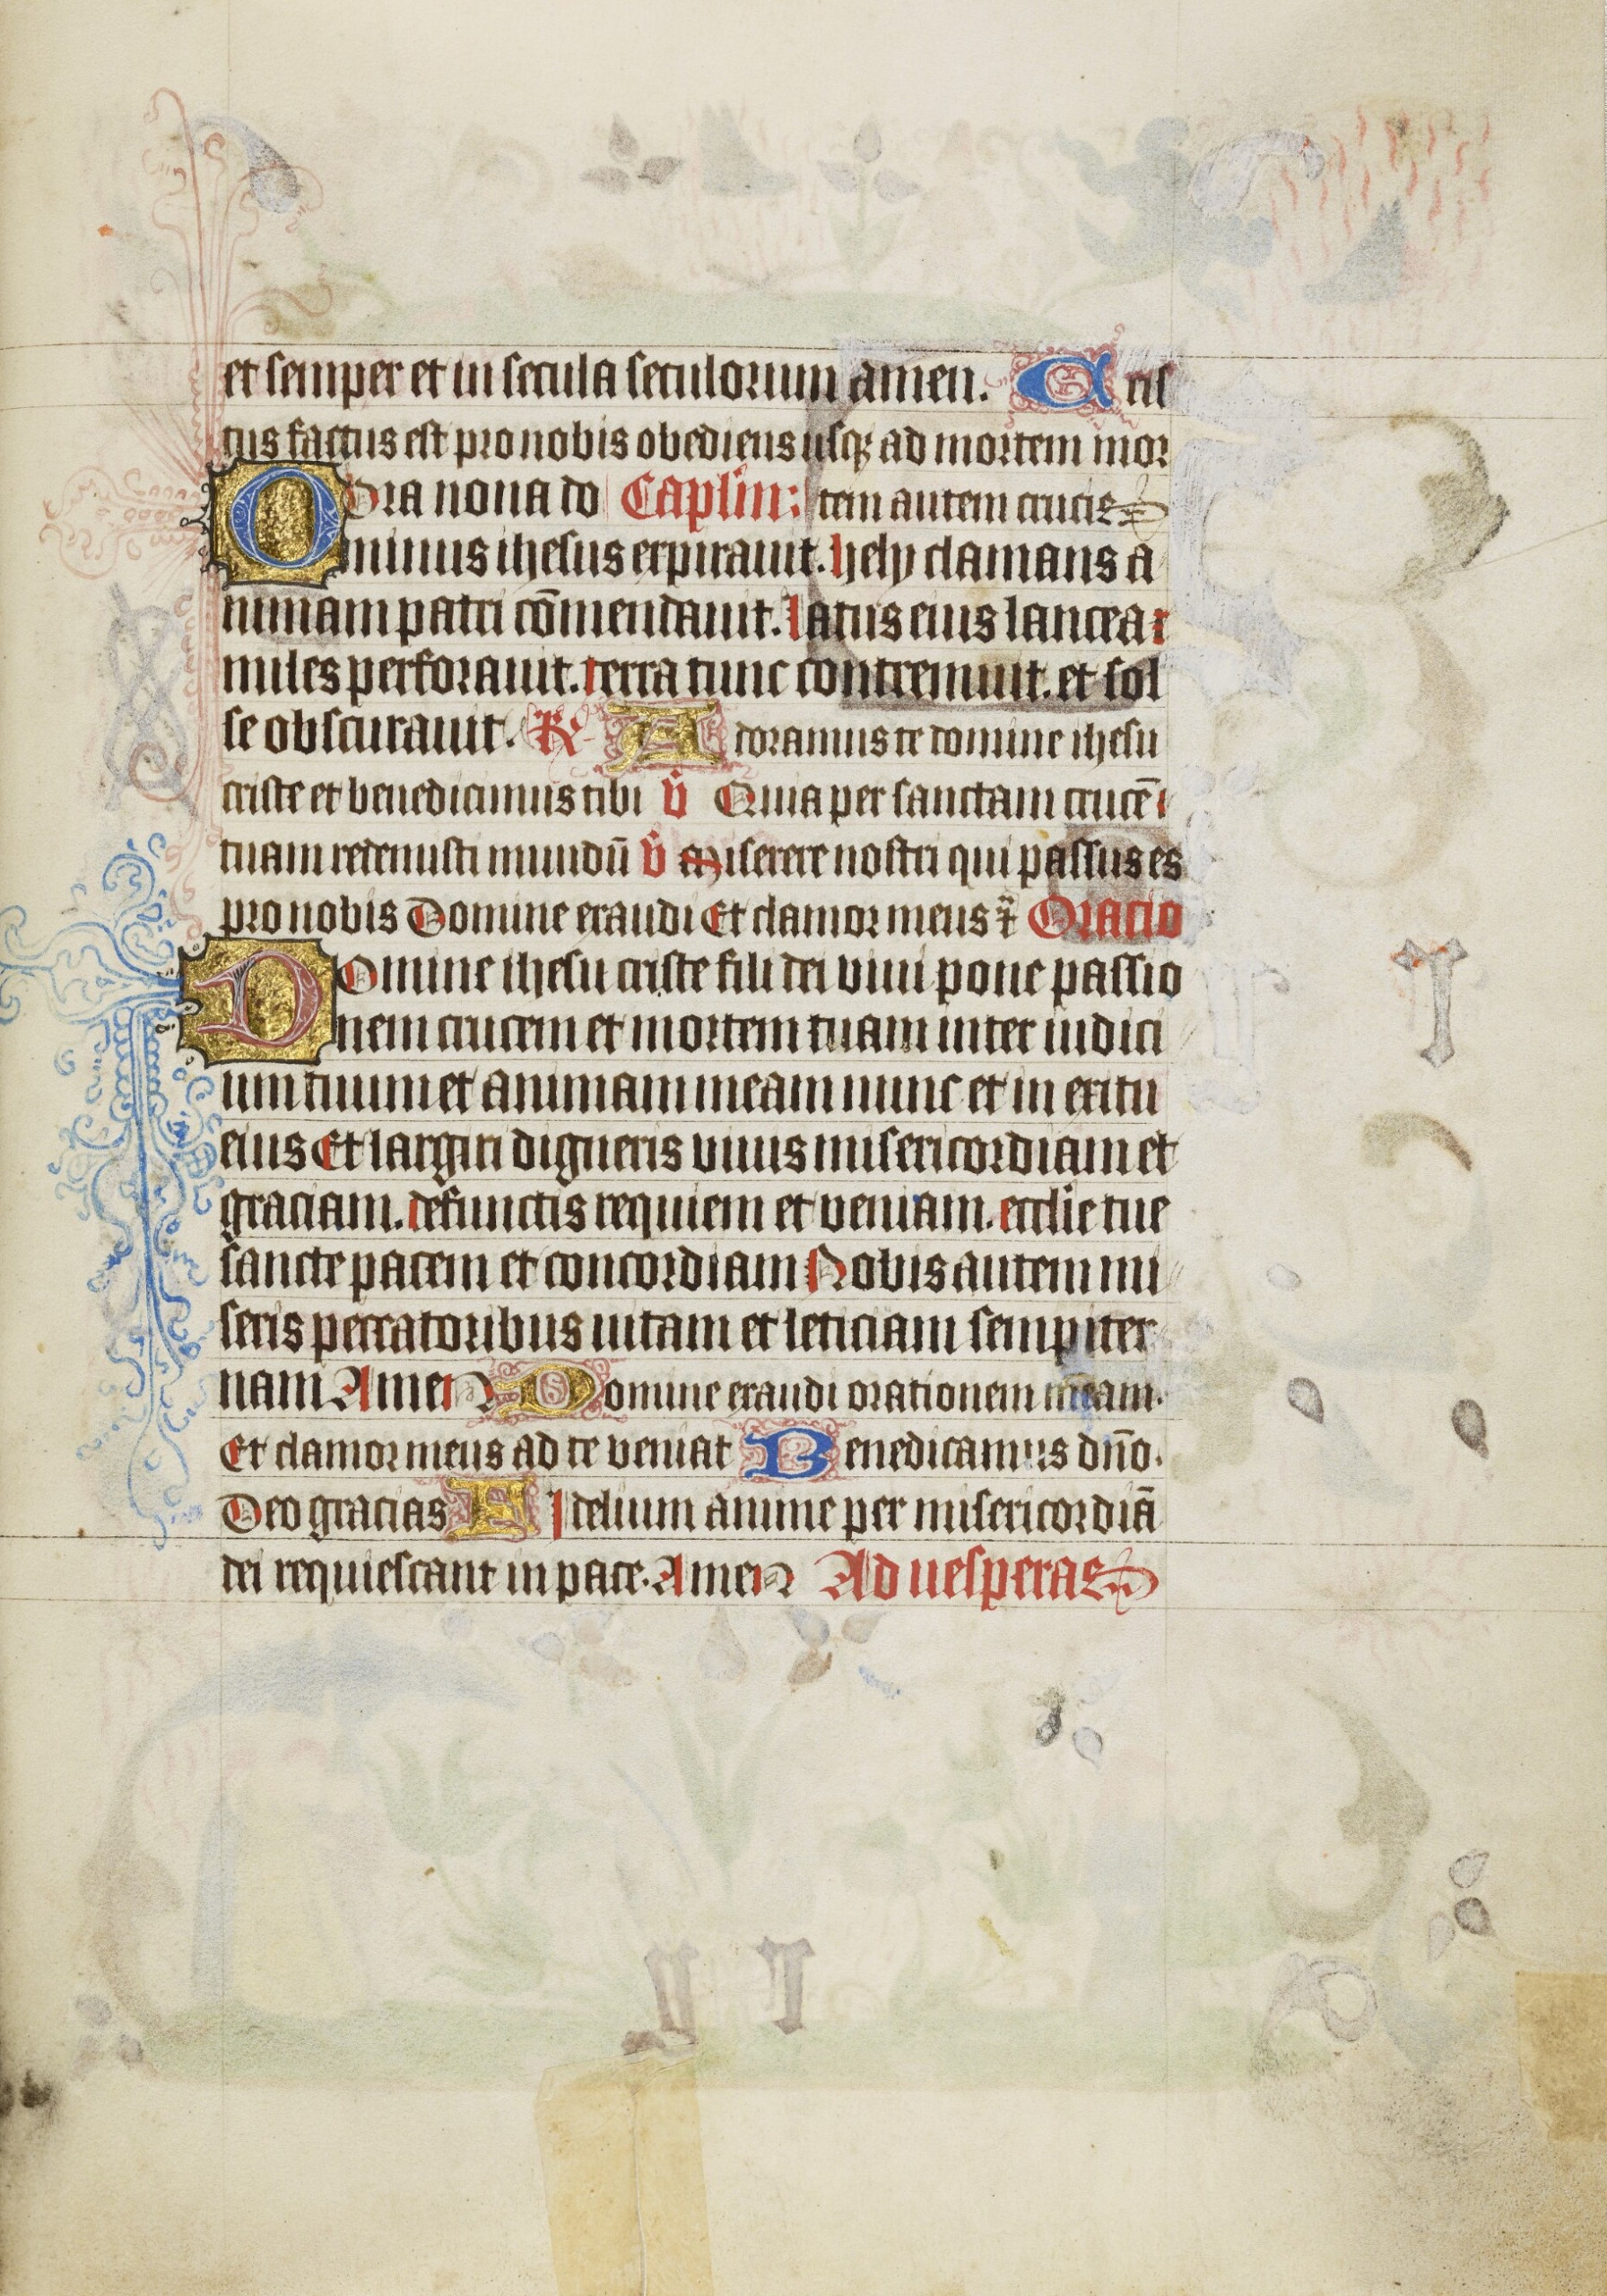 et semper et in secula seculorum amen. Cris
tus factus est pro nobis obediens usq; ad mortem mor
Ora nona do Caplm: tem autem crucis
minus ihesus expirauit. hely clamans a
nimam patri cōmendauit. latus eius lancea
miles perforauit. terra tunc contremuit. et sol
se obscurauit. R Adoramus te domine ihesu
criste et benedicimus tibi v Quia per sanctam crucē
tuam redemisti mundū v Miserere nostri qui passus es
pro nobis Domine exaudi Et clamor meus Oracio
Domine ihesu criste fili dei viui pone passio
nem crucem et mortem tuam inter iudici
um tuum et animam meam nunc et in exitu
eius Et largiri digneris viuis misericordiam et
graciam. defunctis requiem et veniam. ecclie tue
sancte pacem et concordiam Nobis autem mi
seris peccatoribus uitam et leticiam sempiter
nam Amen Domine exaudi orationem meam.
Et clamor meus ad te veniat Benedicamus dn̄o.
Deo gracias Fidelium anime per misericordiā
dei requiescant in pace. Amen Ad uesperas